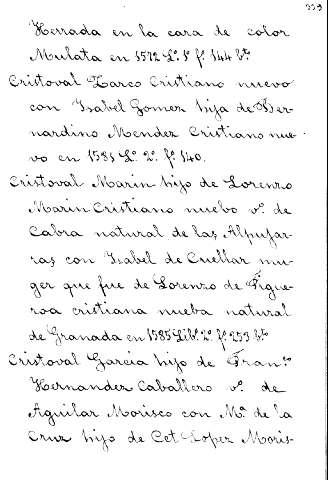 339
Herrada en la cara de color
Mulata en 1572 Lº. 1º fº. 144 bto
Cristoval Zarco Cristiano nuevo
con Isabel Gomez hija de Ber-
nardino Mendez Cristiano nue-
vo en 1581 Lº. 2º. fº. 140.
Cristoval Marin hijo de Lorenzo
Marin Cristiano nuebo vº. de
Cabra natural de las Alpujar-
ras con Isabel de Cuellar mu-
ger que fue de Lorenzo de Figue-
roa cristiana nueba natural
de Granada en 1585 Libº. 2º. fº 253 bto
Cristoval Garcia hijo de Franco
Hernandez Caballero vº. de
Aguilar Morisco con Mª. de la
Cruz hijo de Cet Lopez Moris-